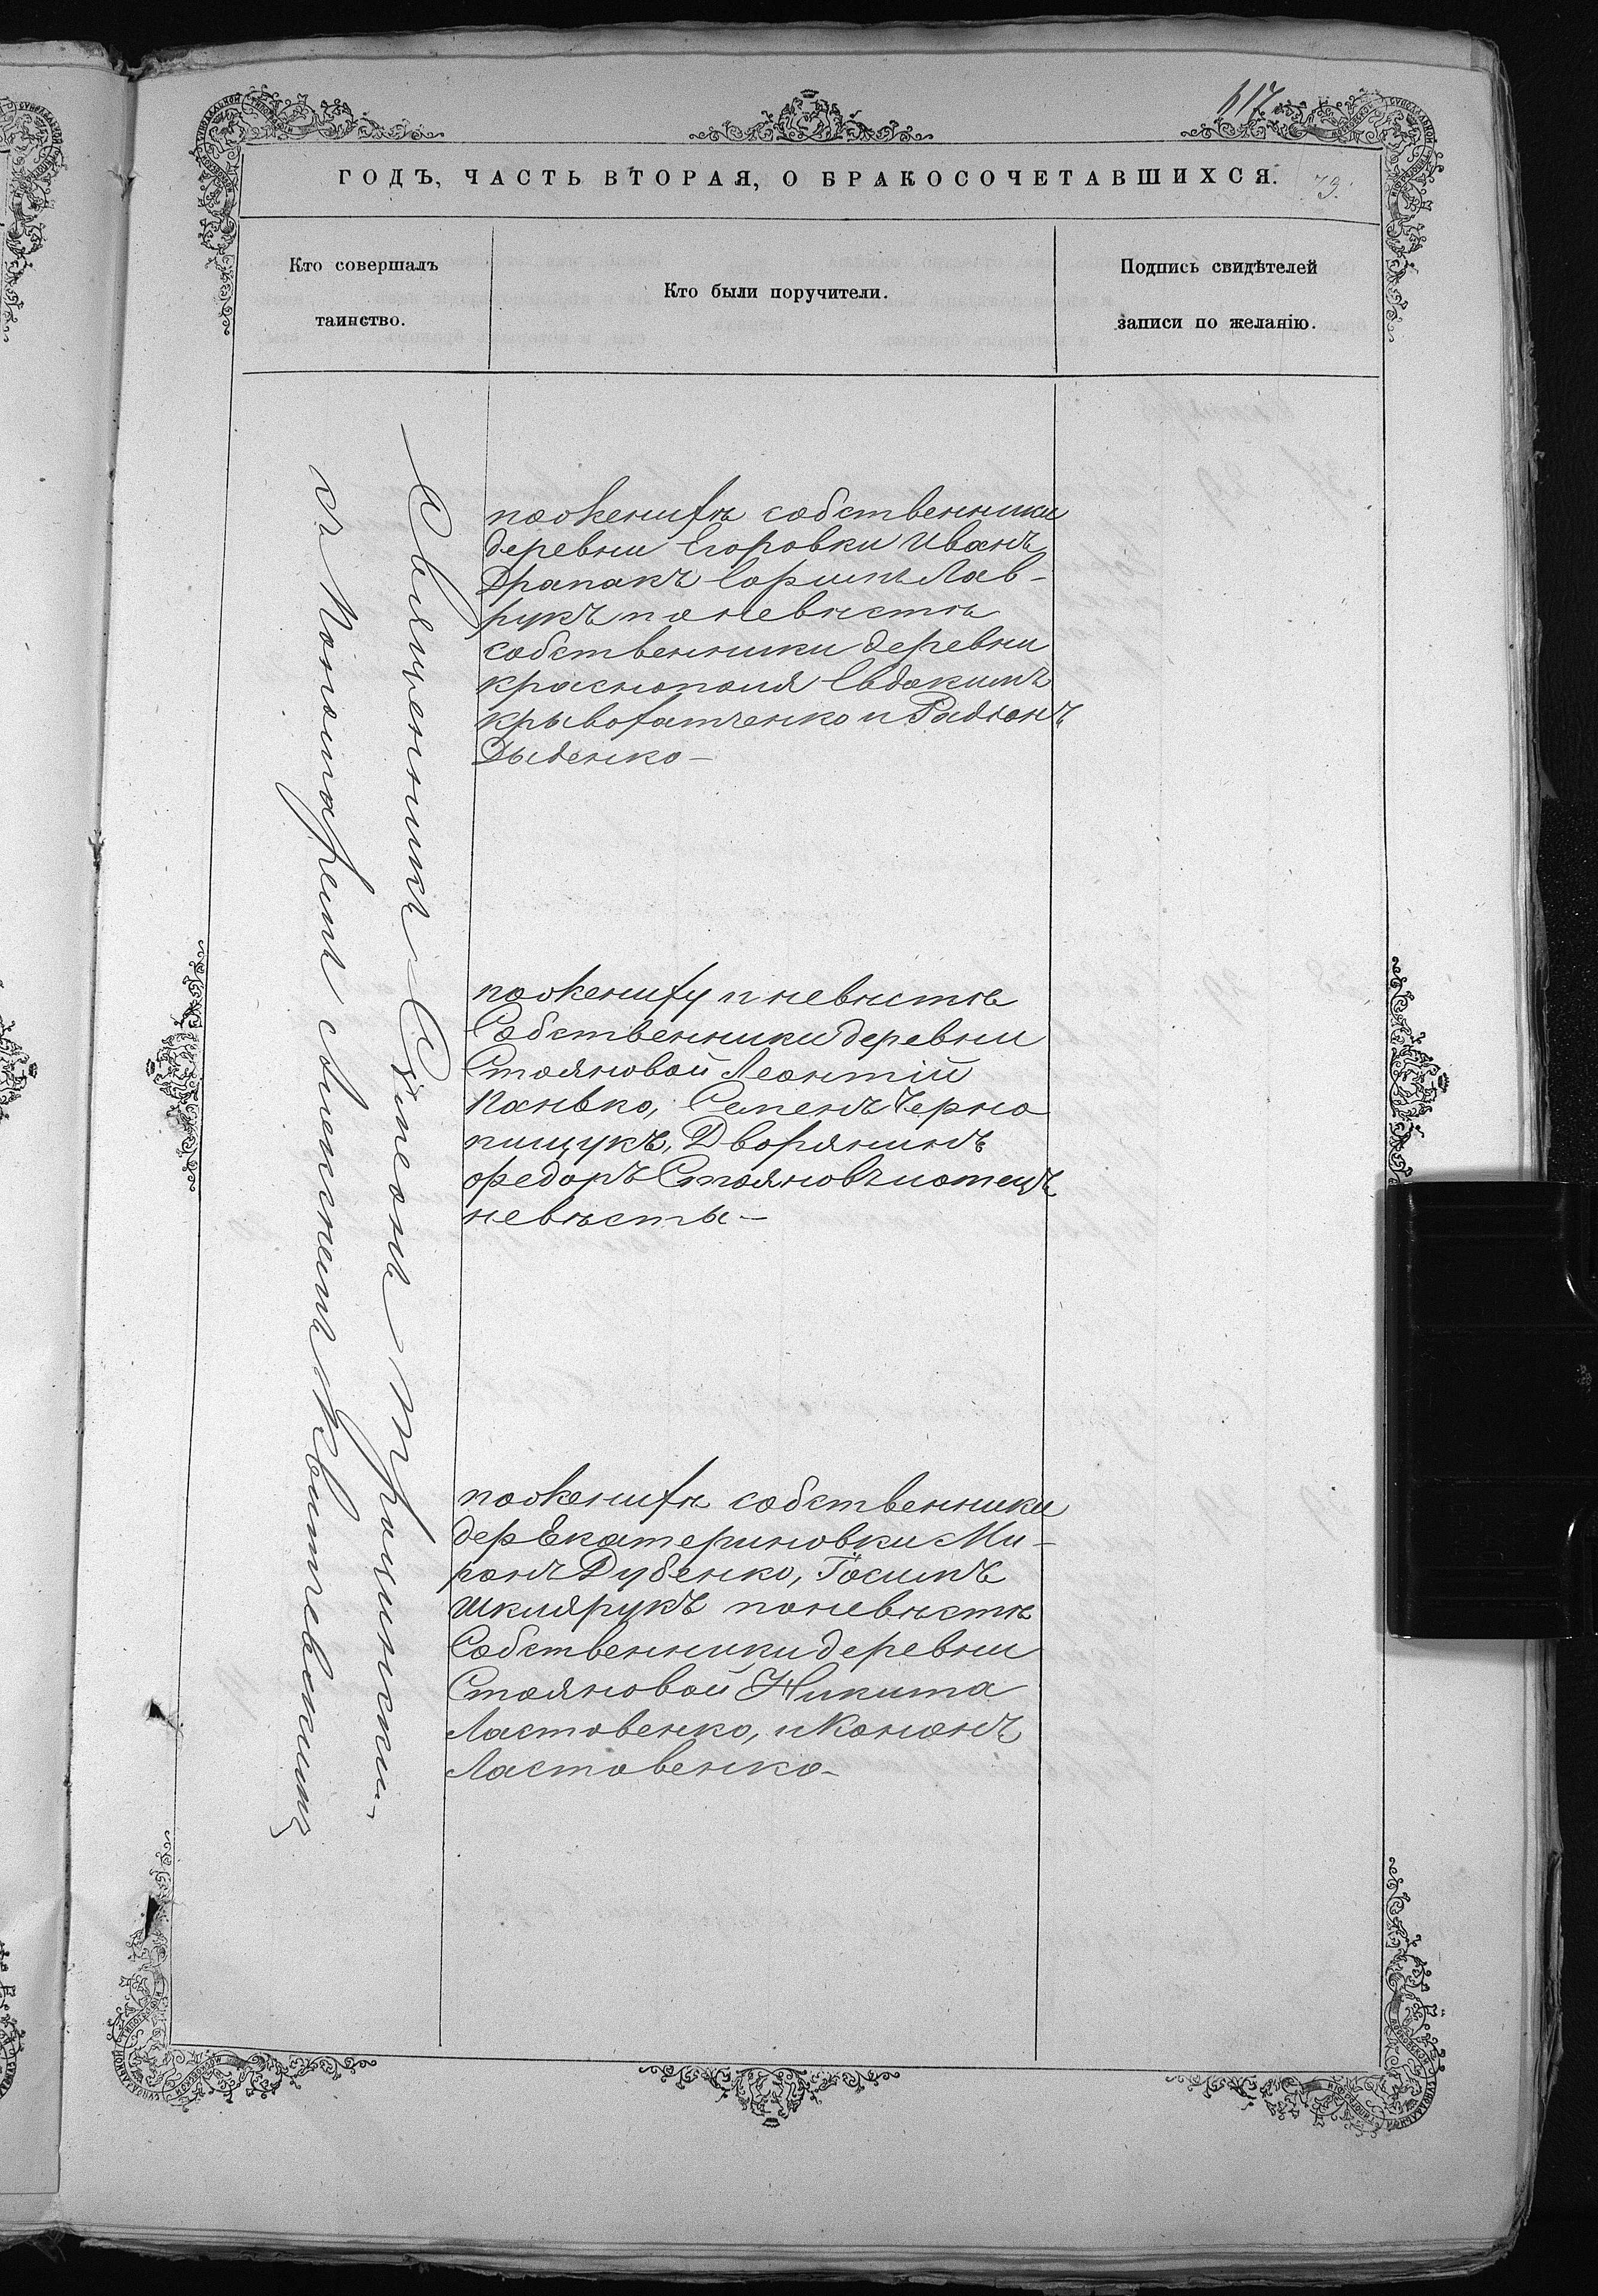 617
ГОДЪ, ЧАСТЬ ВТОРАЯ, О БРАКОСОЧЕТАВШИХСЯ.
79.
Кто совершалъ
таинство.
Кто были поручители.
Подпись свидѣтелей
записи по желанію.
Священникъ Сѵмеонъ
съ Псаломщикомъ
по женихѣ собственники
деревни Егоровки Иванъ
Драпакъ Ефимъ Лав-
рукъ по невѣстѣ
собственники деревни
краснополя Евдокимъ
крывохатченко и Радіонъ
Дыденко-
по жениху и невѣстѣ
Собственники деревни
Стояновой Леонтій
Панько, Семенъ Черно
пищукъ, Дворянинъ
федоръ Стояновъ и отецъ
невѣсты-
по женихѣ собственники
дер Екатериновки Ми-
ронъ Дубенко, Іосипъ
шклярукъ по невѣстѣ
Собственники деревни
Стояновой Никита
Ластовенко, и Кононъ
Ластовенко-